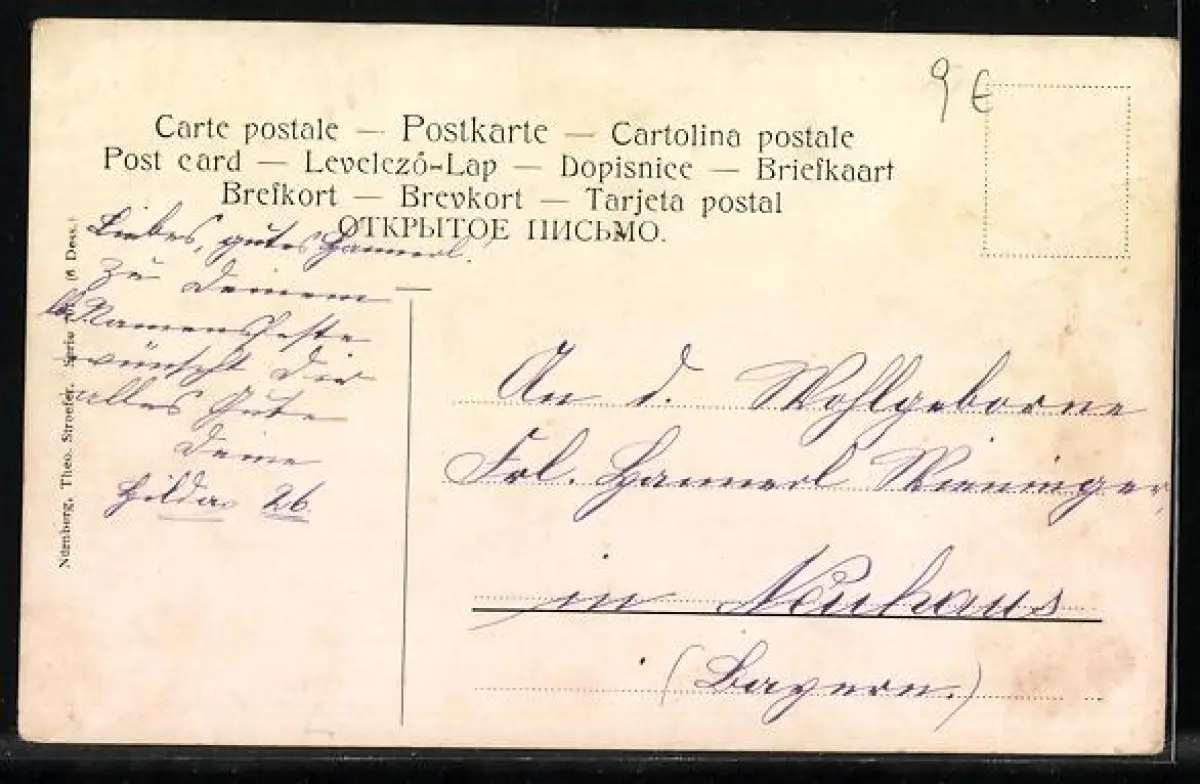 9 €
Carte postale — Postkarte — Cartolina postale
Post card — Levelező-Lap — Dopisnice — Briefkaart
Brefkort — Brevkort — Tarjeta postal
ОТКРЫТОЕ ПИСЬМО.
Liebes, gutes Hannerl!
Zu Deinem
Namensfeste
wünscht Dir
alles Gute
Deine
Hilda 26.
An d. Wohlgeborne
Frl. Hannerl Wieninger
in Neuhaus
(Bayern.)
Nürnberg, Theo. Stroefer. Serie (6 Dess.)